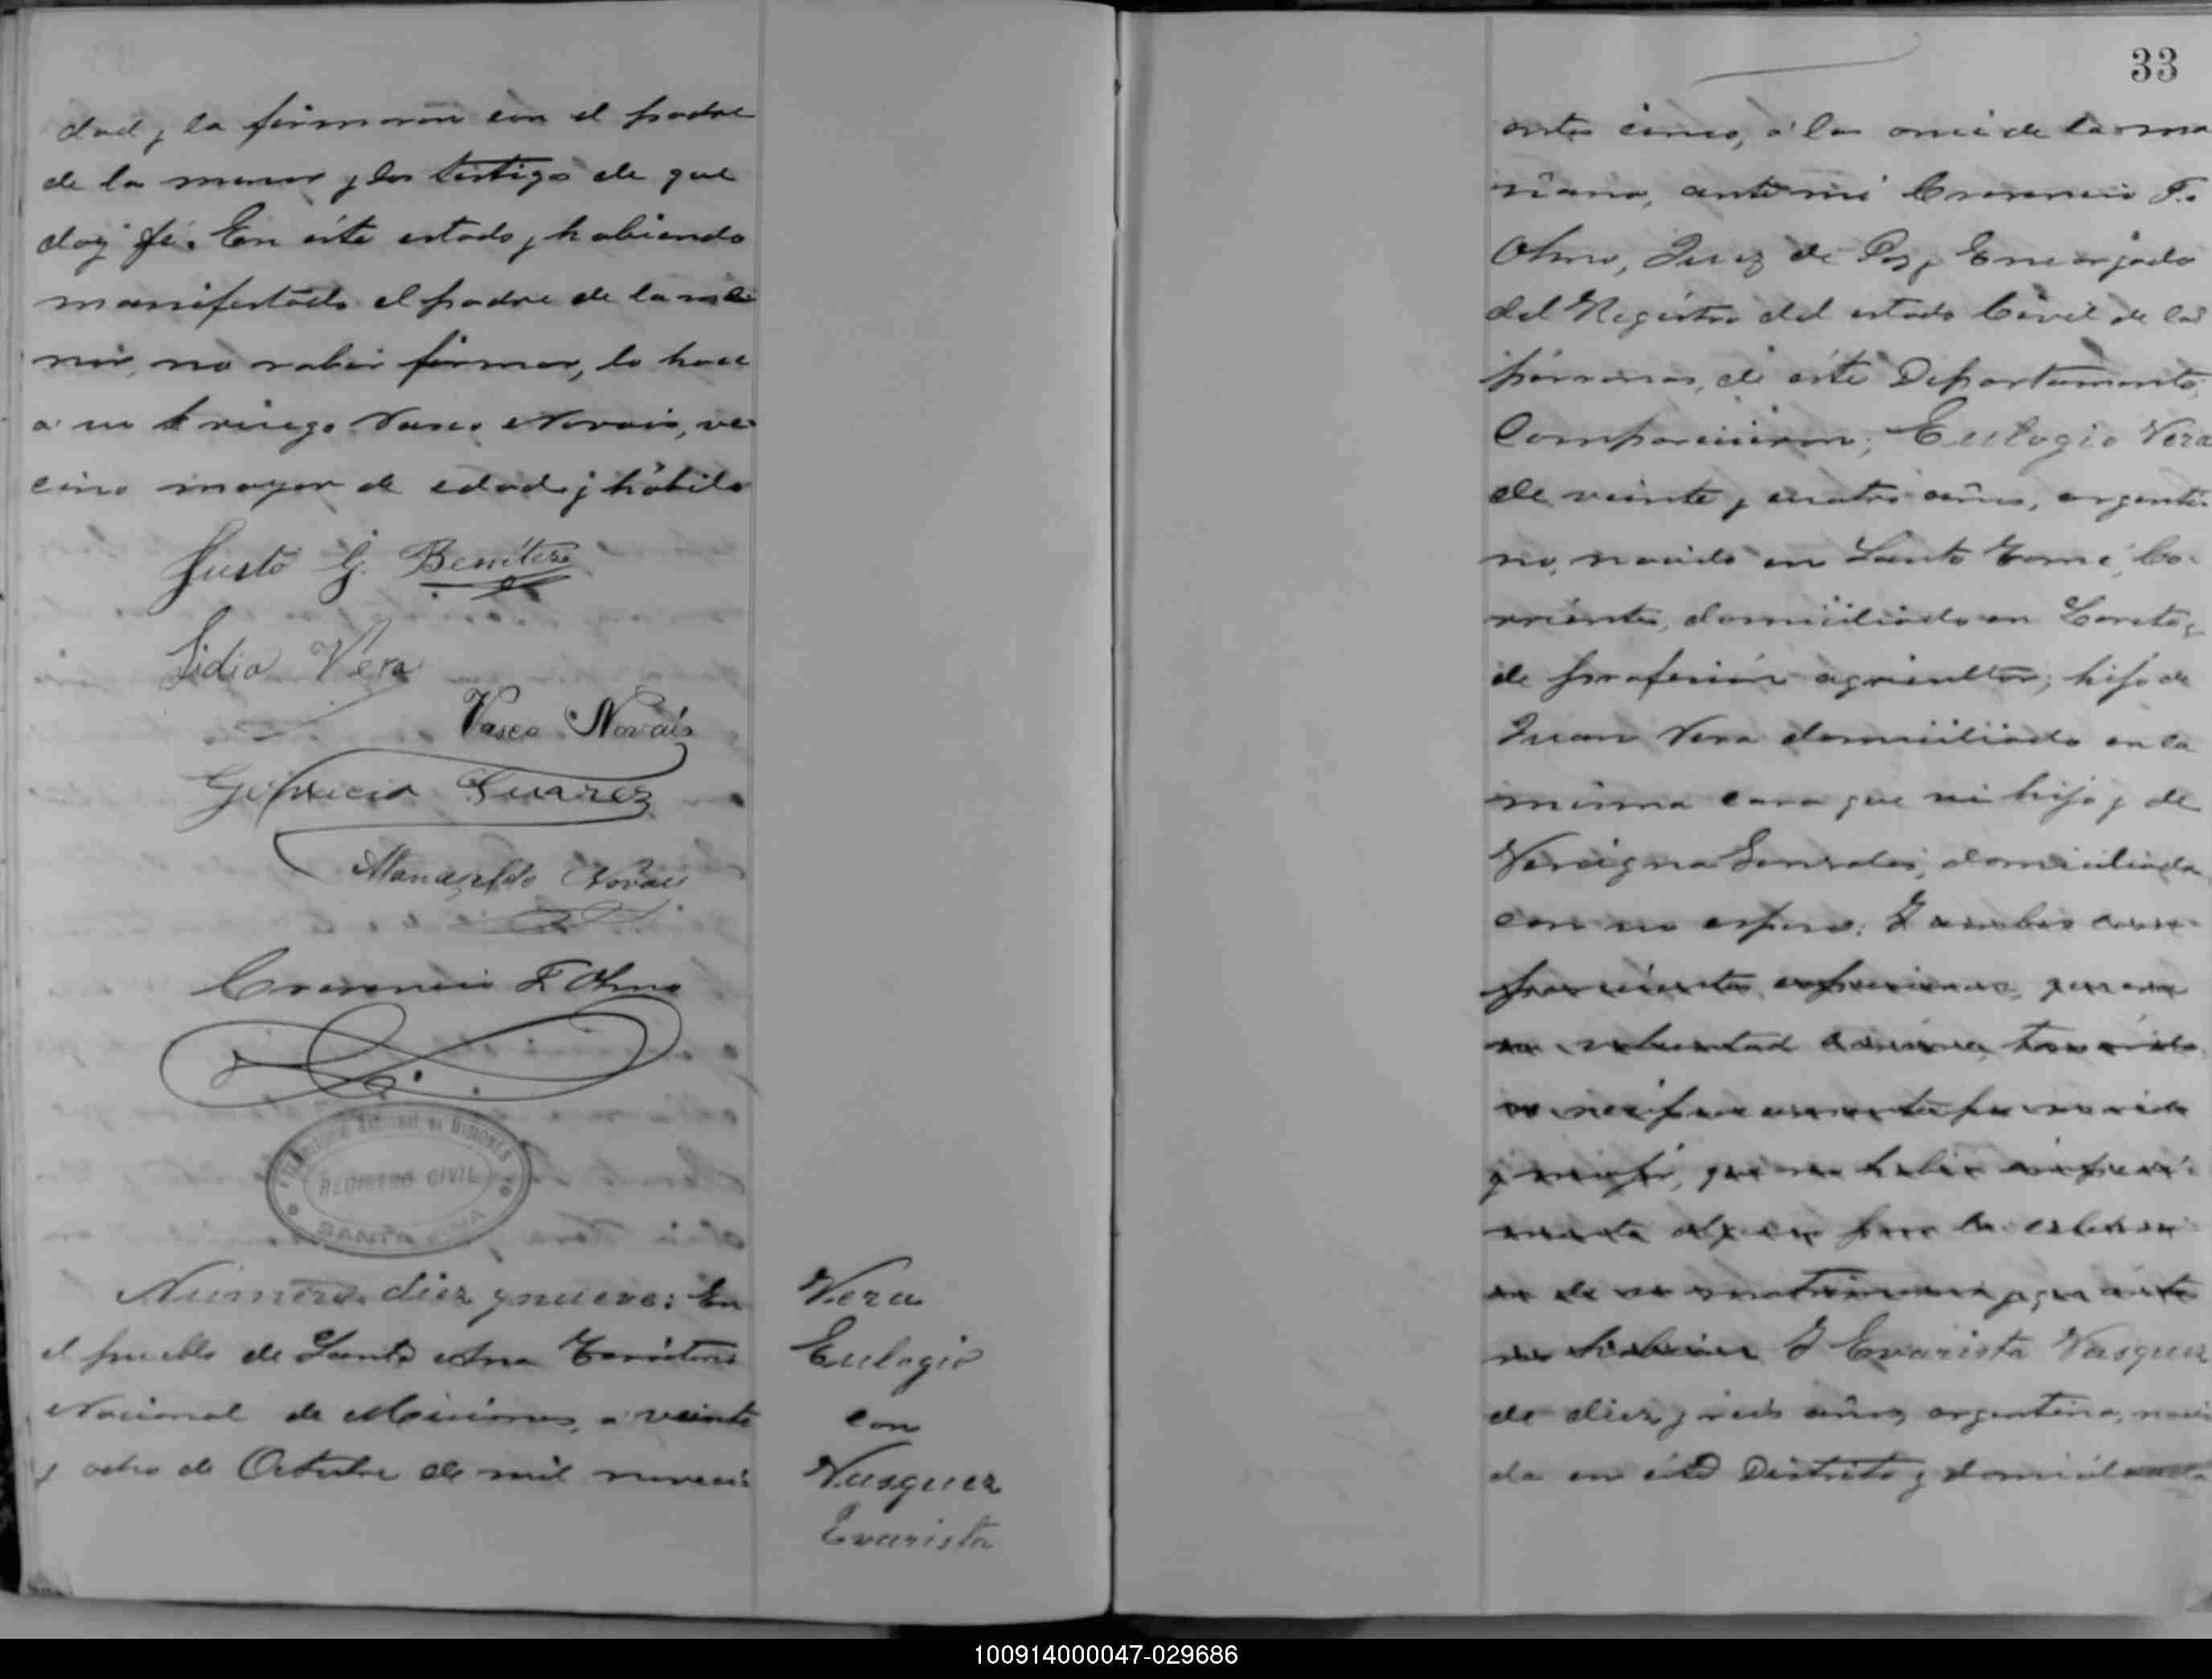 dad, y la firmaron con el padre
de la menor y los testigos de que
doy fé. En éste estado, y habiendo
manifestado el padre de la me
nor, no saber firmar, lo hace
a su ruego Vasco Novais, ve-
cino mayor de edad y hábil.
Justo G. Benítez
Lidia Vera
Vasco Novais
Suarez
Novais
Crecencio F. Olmo
TERRITORIO NACIONAL DE MISIONES
REGISTRO CIVIL
SANTA ANA
Número diez y nueve: En
el pueblo de Santa Ana Territorio
Nacional de Misiones, a veinte
y ocho de Octubre de mil noveci-
Vera
Eulogio
con
Vasquez
Evarista
33
entos cinco, á las once de la ma
ñana, ante mi Crecencio F.
Olmo, Juez de Paz y Encargado
del Registro del estado Civil de las
personas, de éste Departamento,
Comparecieron; Eulogio Vera
de veinte y cuatro años, argenti-
no, nacido en Santo Tomé, Co-
rrientes, domiciliado en Loreto,
de profesión agricultor; hijo de
Juan Vera domiciliado en la
misma casa que su hijo y de
Gonzalez, domiciliada
con su esposo. Y ambos com-
parecientes expresaron, que era
su voluntad
y mujer, que no habia impedi-
mento alguno para la celebraci
on de su matrimonio y que
Y Evarista Vasquez
de diez y seis años, argentina, naci
da en éste Distrito y domiciliada
100914000047-029686